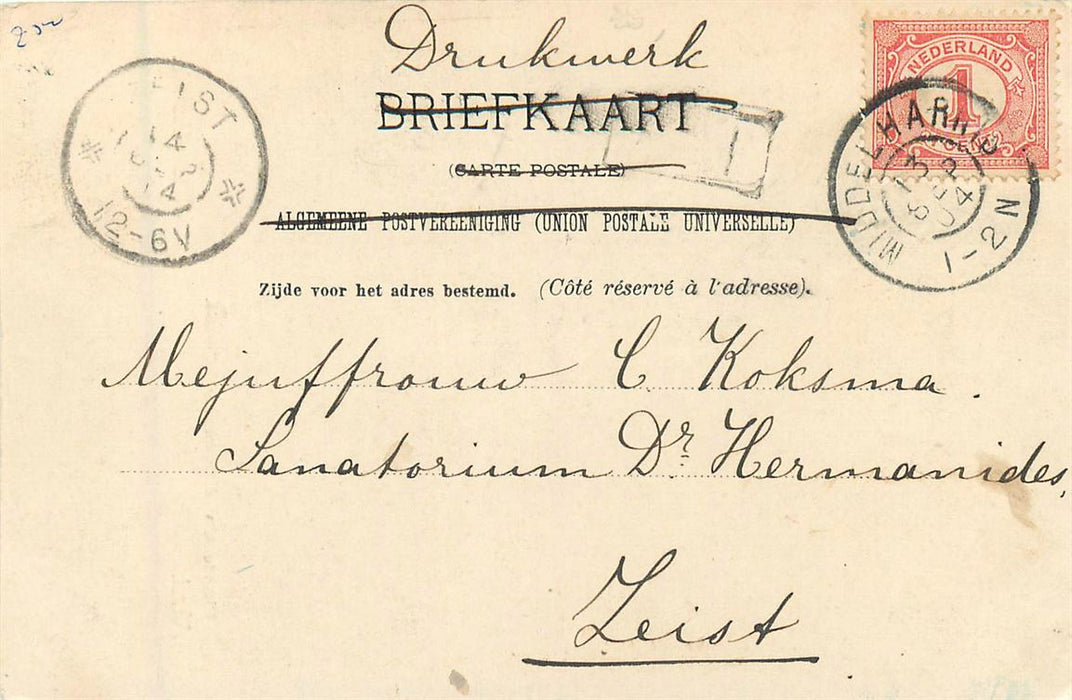 Drukwerk
BRIEFKAART
(CARTE POSTALE)
ALGEMEENE POSTVEREENIGING (UNION POSTALE UNIVERSELLE)
Zijde voor het adres bestemd. (Côté réservé à l'adresse).
Mejuffrouw C. Koksma.
Sanatorium Dr. Hermanides,
Zeist
NEDERLAND
1
CENT
MIDDELHARNIS
13 SEP
04
1-2N
EIST
12-6V
T